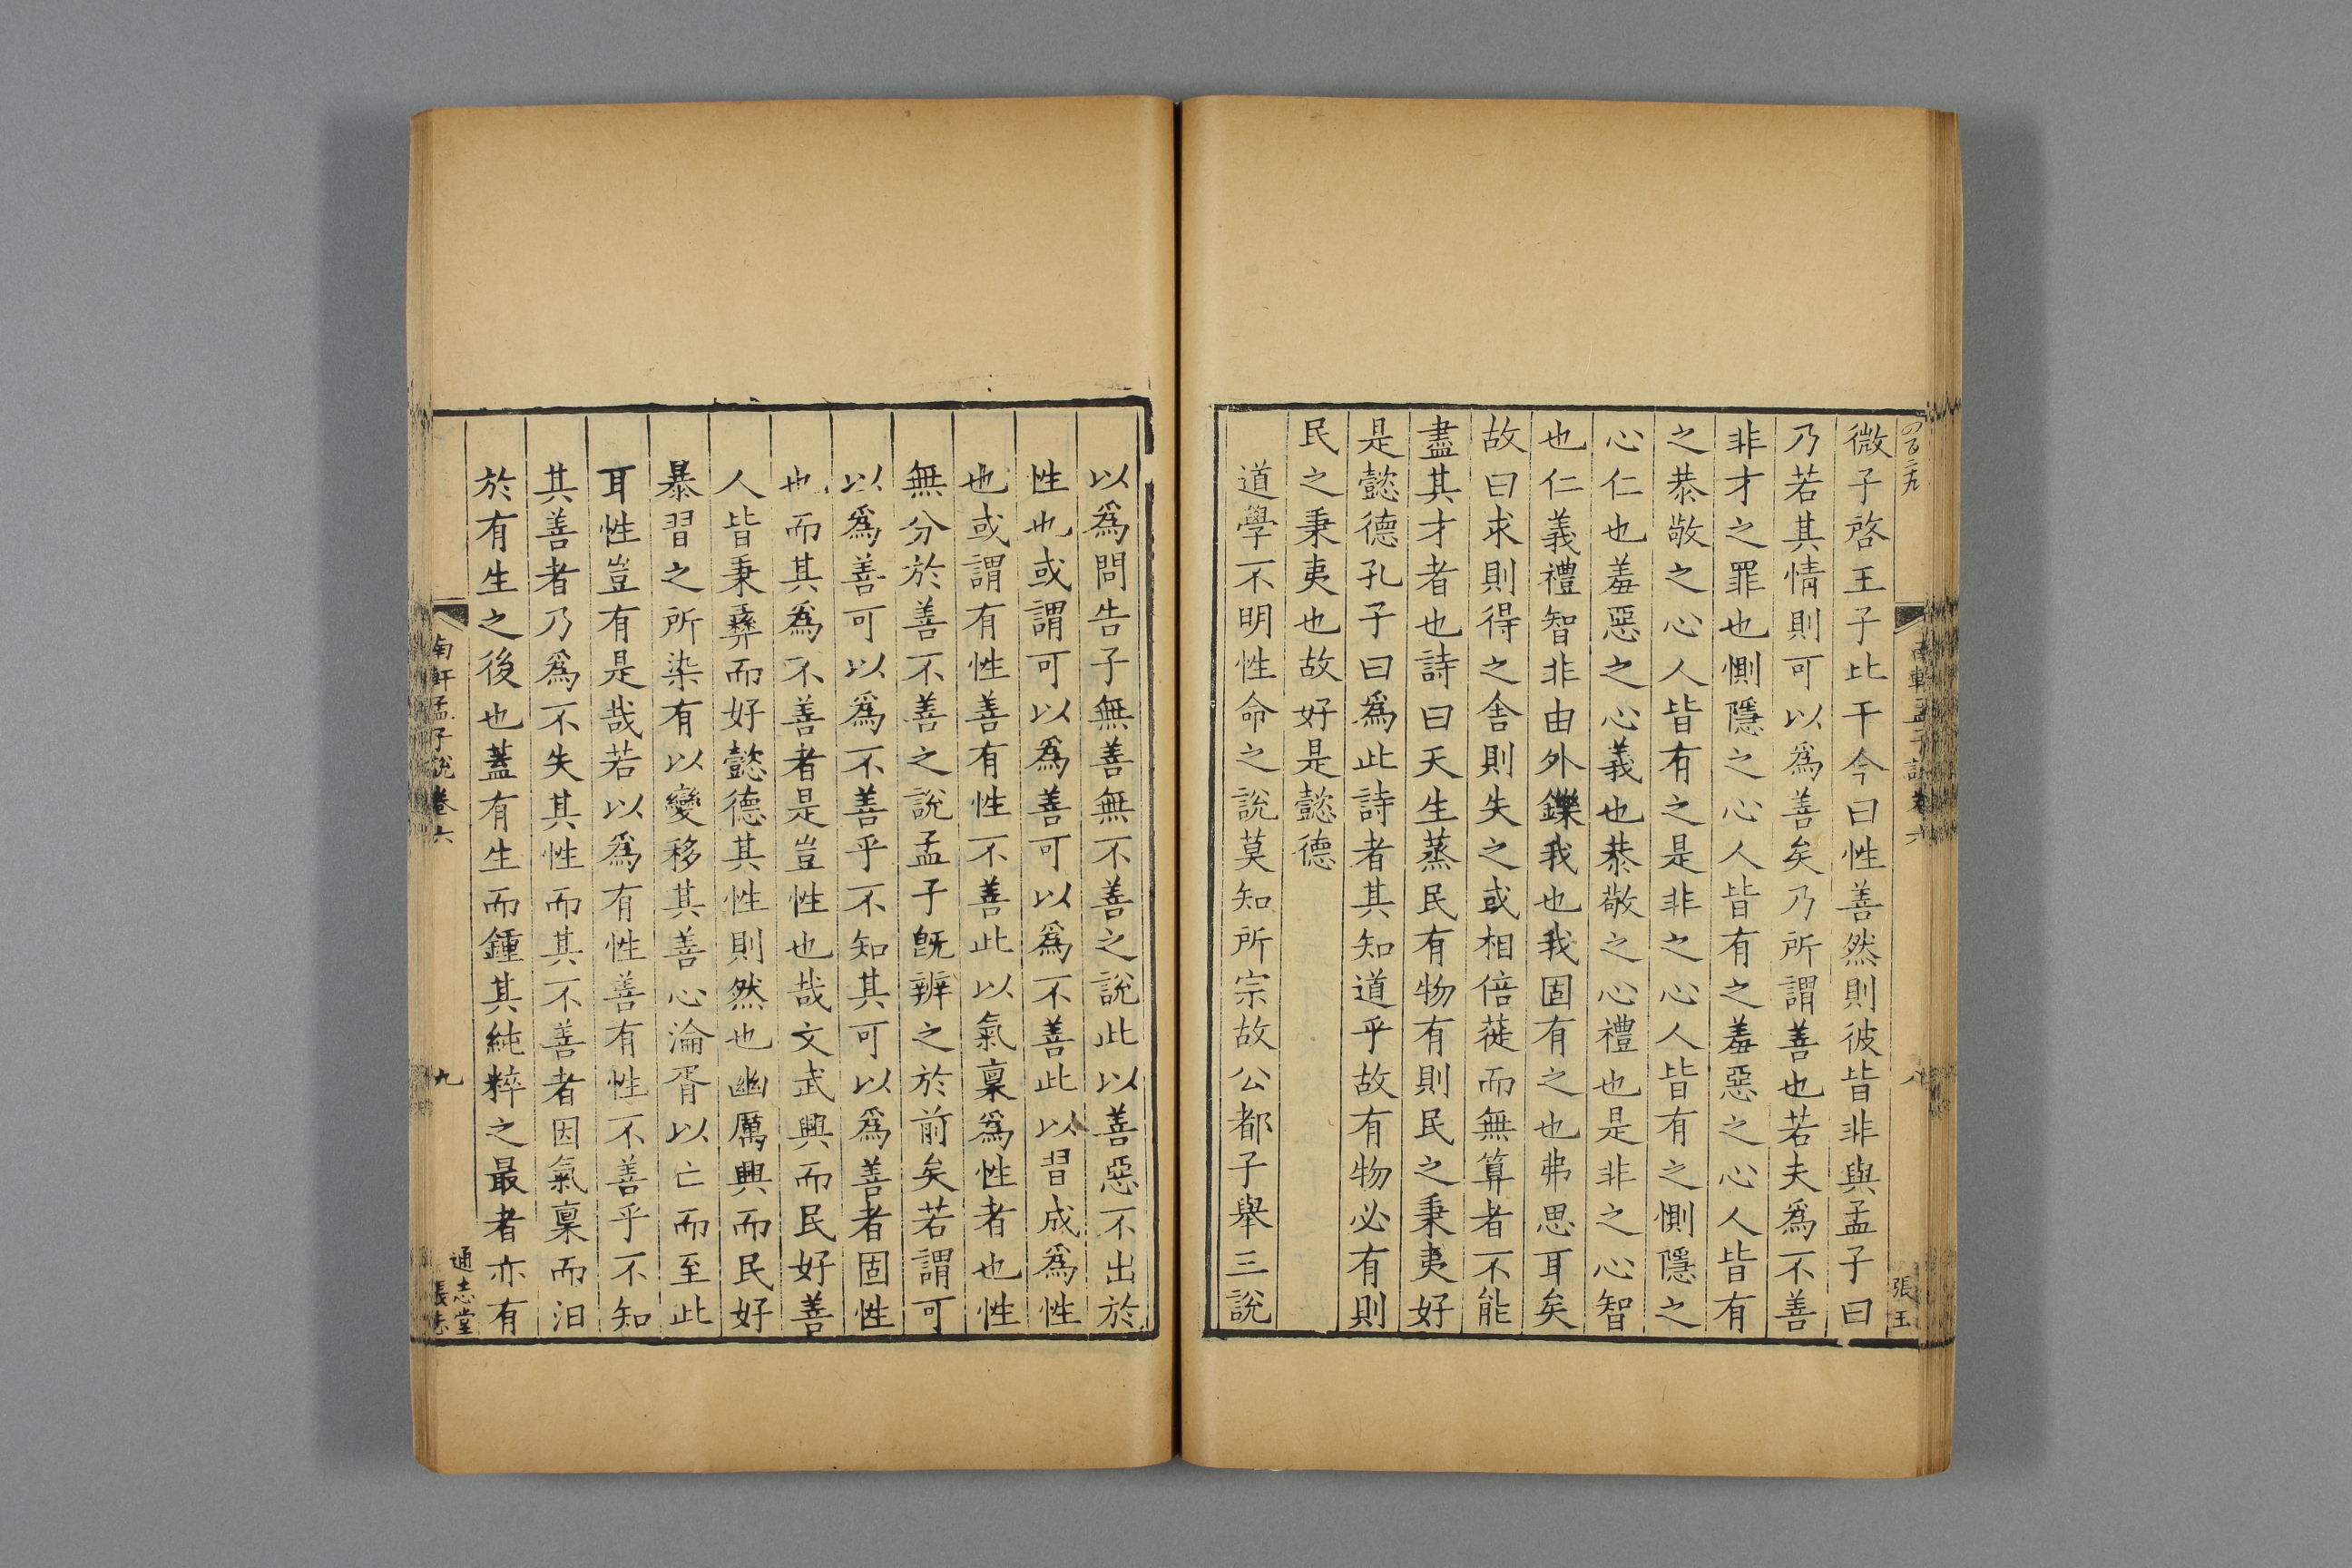 微子啓王子比干今曰性善然則彼皆非與孟子曰
乃若其情則可以爲善矣乃所謂善也若夫爲不善
非才之罪也惻隱之心人皆有之羞惡之心人皆有
之恭敬之心人皆有之是非之心人皆有之惻隱之
心仁也羞惡之心義也恭敬之心禮也是非之心智
也仁義禮智非由外鑠我也我固有之也弗思耳矣
故曰求則得之舍則失之或相倍蓰而無算者不能
盡其才者也詩曰天生蒸民有物有則民之秉夷好
是懿德孔子曰爲此詩者其知道乎故有物必有則
民之秉夷也故好是懿德
道學不明性命之說莫知所宗故公都子舉三說
以爲問告子無善無不善之說此以善惡不出於
性也或謂可以爲善可以爲不善此以習成爲性
也或謂有性善有性不善此以氣稟爲性者也性
無分於善不善之說孟子旣辨之於前矣若謂可
以爲善可以爲不善乎不知其可以爲善者固性
也而其爲不善者是豈性也哉文武興而民好善
人皆秉彝而好懿德其性則然也幽厲興而民好
暴習之所染有以變移其善心淪胥以亡而至此
耳性豈有是哉若以爲有性善有性不善乎不知
其善者乃爲不失其性而其不善者因氣稟而汩
於有生之後也蓋有生而鍾其純粹之最者亦有
南軒孟子說卷六
九
通志堂